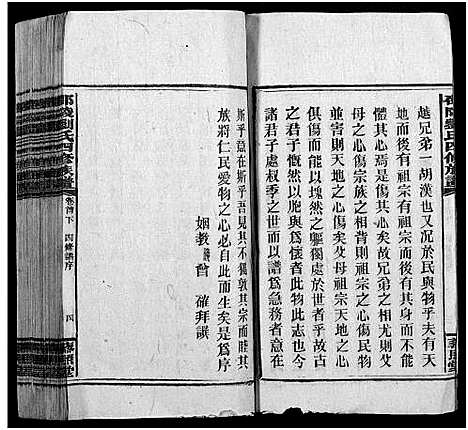 越兄弟一胡漢也又况於民與物乎夫有天
地而後有祖宗有祖宗而後有身而不能
體其心焉是傷其天矣故兄弟之相尤則父
母之心傷宗族之相背則祖宗之心傷民物
並害則天地之心傷矣父母祖宗天地之心
俱傷而能以塊然之軀獨處於世者乎故古
之君子慨然以萬民爲懷者此物此志也今
之君子處叔季之世而以譜爲急務者意在
斯乎意在斯乎吾見其不獨敦其宗而睦其
族將仁民愛物之心必自此而生矣是爲序
姻教曾確拜譔
邵陵劉氏四修族譜
卷首下
四修譜序
四